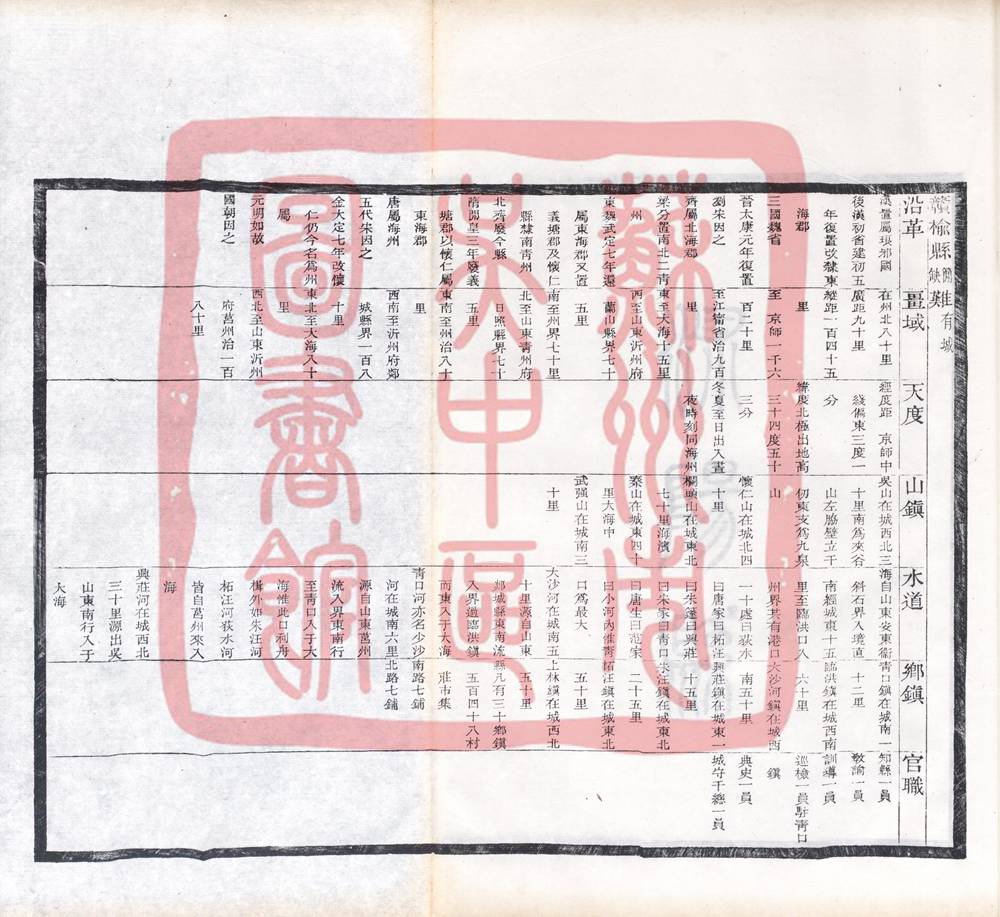 贛榆縣簡缺難有城
沿革
漢置屬琅邪國
後漢初省建初五
年復置改隸東
海郡
三國魏省
晉太康元年復置
劉宋因之
齊屬北海郡
梁分置南北二青
州
東魏武定七年還
屬東海郡又置
義塘郡及懷仁
縣隸南青州
北齊廢今縣
隋開皇三年廢義
塘郡以懷仁屬
東海郡
唐屬海州
五代宋因之
金大定七年改懷
仁仍今名為州
屬
元明如故
國朝因之
畺域
在州北八十里
廣距九十里
縱距一百四十五
里
至 京師一千六
百二十里
至江甯省治九百
里
東至大海十五里
西至山東沂州府
蘭山縣界七十
五里
南至州界七十里
日照縣界七十
北至山東青州府
五里
東南至州治八十
里
西南至沂州府郯
城縣界一百八
十里
東北至大海八十
里
西北至山東沂州
府莒州治一百
八十里
天度
經度距 京師中
綫偏東三度一
分
緯度北極出地高
三十四度五十
三分
冬夏至日出入晝
夜時刻同海州
山鎮
吳山在城西北三
十里南為夾谷
山左脇壁立千
仞東支為九泉
山
懷仁山在城北四
十里
欄頭山在城東北
七十里海濱
秦山在城東四十
里大海中
武强山在城南三
十里
水道
海自山東安東衛
斜石界入境直
南經城東十五
里至臨洪口入
州界共有港口
一十處曰荻水
曰唐家曰柘汪
曰朱蓬曰興莊
曰朱家曰青口
曰唐生曰范家
曰小河內惟青
口為最大
大沙河在城南五
十里源自山東
郯城縣東南流
入界逕臨洪鎮
而東入于大海
青口河亦名少沙
河在城南六里
源自山東莒州
流入界東南行
至青口入于大
海惟此口利舟
楫外如朱汪河
柘汪河荻水河
皆自莒州來入
海
興莊河在城西北
三十里源出吳
山東南行入于
大海
鄉鎮
青口鎮在城南一
十二里
臨洪鎮在城西南
六十里
大沙河鎮在城西
南五十里
興莊鎮在城東一
十五里
朱汪鎮在城東北
二十五里
柘汪鎮在城東北
五十里
上林鎮在城西北
五十里
縣凡有三十鄉鎮
五百四十八村
莊市集
南路七鋪
北路七鋪
官職
知縣一員
敎諭一員
訓導一員
巡檢一員駐青口
鎮
典史一員
城守千總一員
蘇州市
文甲區
圖書館